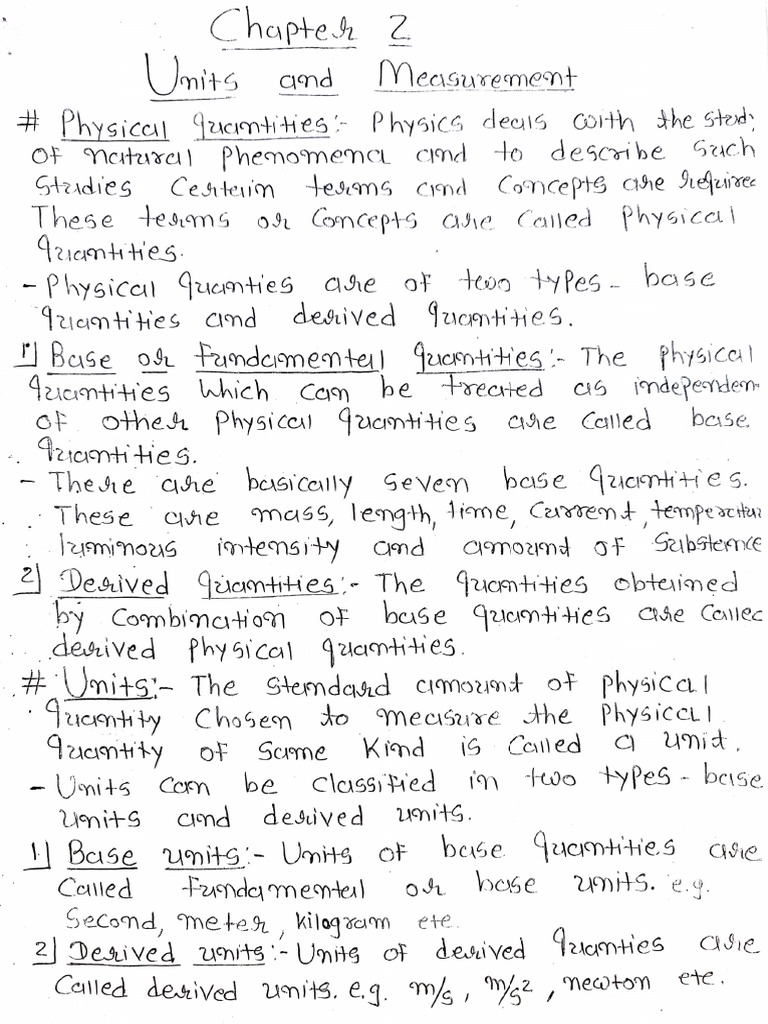 Chapter 2
Units and Measurement
# Physical quantities:- Physics deals with the study
of natural phenomena and to describe such
studies certain terms and concepts are require
These terms or concepts are called physical
quantities.
- Physical quanties are of two types - base
quantities and derived quantities.
1) Base or fundamental quantities:- The physical
quantities which can be treated as independen
of other physical quantities are called base
quantities.
- There are basically seven base quantities.
These are mass, length, time, current, temperatur
luminous intensity and amount of substance
2) Derived quantities:- The quantities obtained
by combination of base quantities are called
derived physical quantities.
# Units:- The standard amount of physical
quantity chosen to measure the physical
quantity of same kind is called a unit.
- Units can be classified in two types - base
units and derived units.
1) Base units:- Units of base quantities are
called fundamental or base units. e.g.
second, meter, kilogram etc.
2) Derived units:- Units of derived quanties are
called derived units. e.g. m/s, m/s², newton etc.